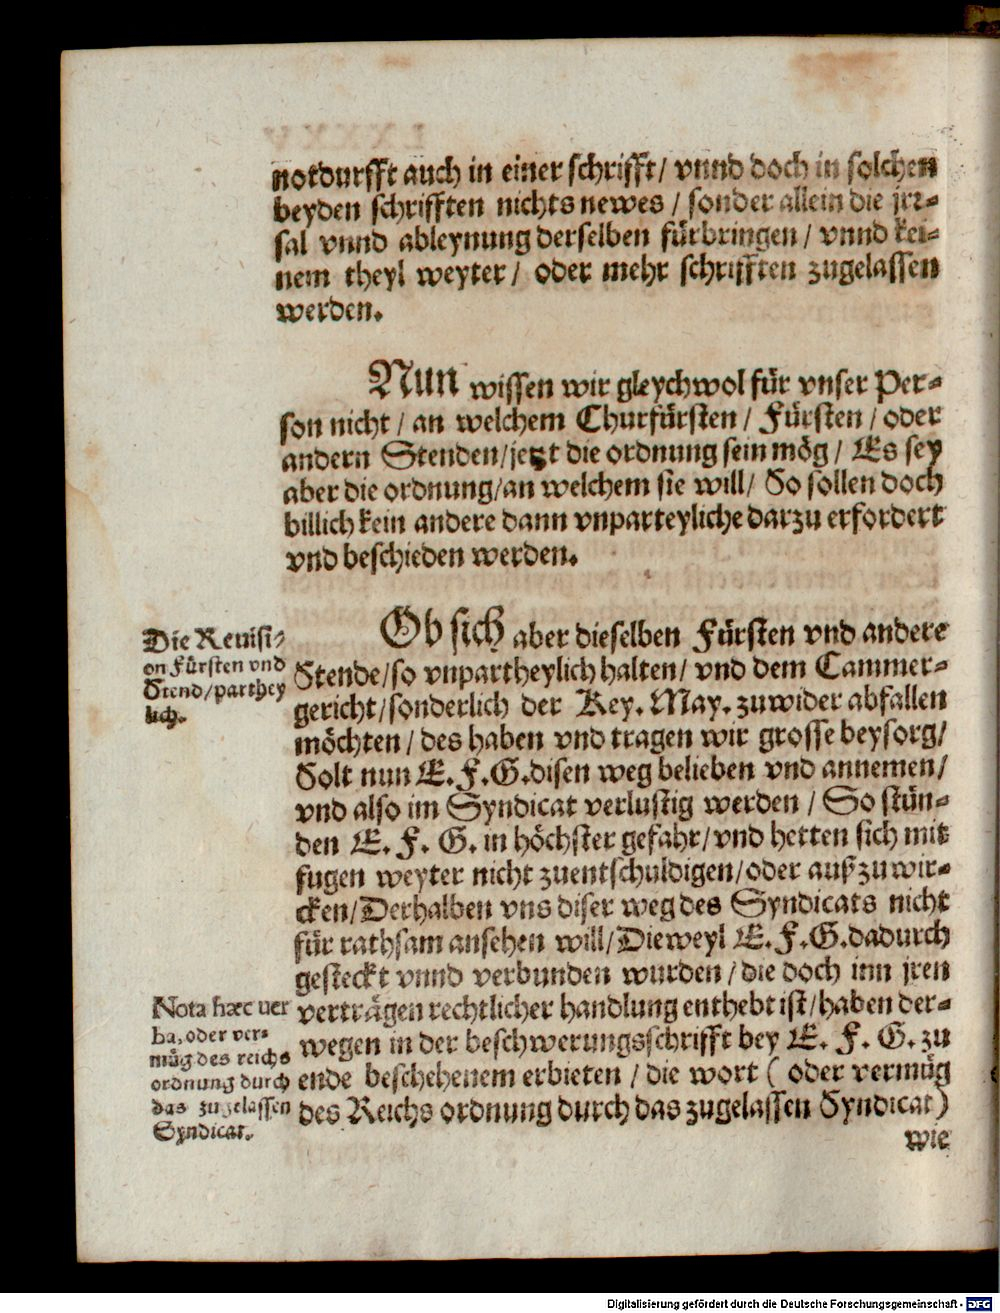 notdurfft auch in einer schrifft/ vnnd doch in solchen
beyden schrifften nichts newes / sonder allein die jrr-
sal vnnd ableynung derselben fürbringen / vnnd kei-
nem theyl weyter / oder mehr schrifften zugelassen
werden.
Nun wissen wir gleychwol für vnser Per-
son nicht / an welchem Churfürsten / Fürsten / oder
andern Stenden/jetzt die ordnung sein mög / Es sey
aber die ordnung/an welchem sie will/ So sollen doch
billich kein andere dann vnparteyliche darzu erfordert
vnd beschieden werden.
Die Reuisi-
on Fürsten vnd
Stend/parthey
lich.
Ob sich aber dieselben Fürsten vnd andere
Stende/so vnpartheylich halten/ vnd dem Cammer-
gericht/sonderlich der Key. May. zuwider abfallen
möchten / des haben vnd tragen wir grosse beysorg/
Solt nun E. F. G. disen weg belieben vnd annemen/
vnd also im Syndicat verlustig werden / So stün-
den E. F. G. in höchster gefahr/vnd hetten sich mit
fugen weyter nicht zuentschuldigen/oder außzuwir-
cken/Derhalben vns diser weg des Syndicats nicht
für rathsam ansehen will/Dieweyl E. F. G. dadurch
gesteckt vnnd verbunden wurden / die doch inn jren
verträgen rechtlicher handlung enthebt ist/haben der-
wegen in der beschwerungsschrifft bey E. F. G. zu
ende beschehenem erbieten / die wort ( oder vermüg
des Reichs ordnung durch das zugelassen Syndicat)
Nota hæc uer
ba, oder ver-
müg des reichs
ordnung durch
das zugelassen
Syndicat.
wie
Digitalisierung gefördert durch die Deutsche Forschungsgemeinschaft - DFG